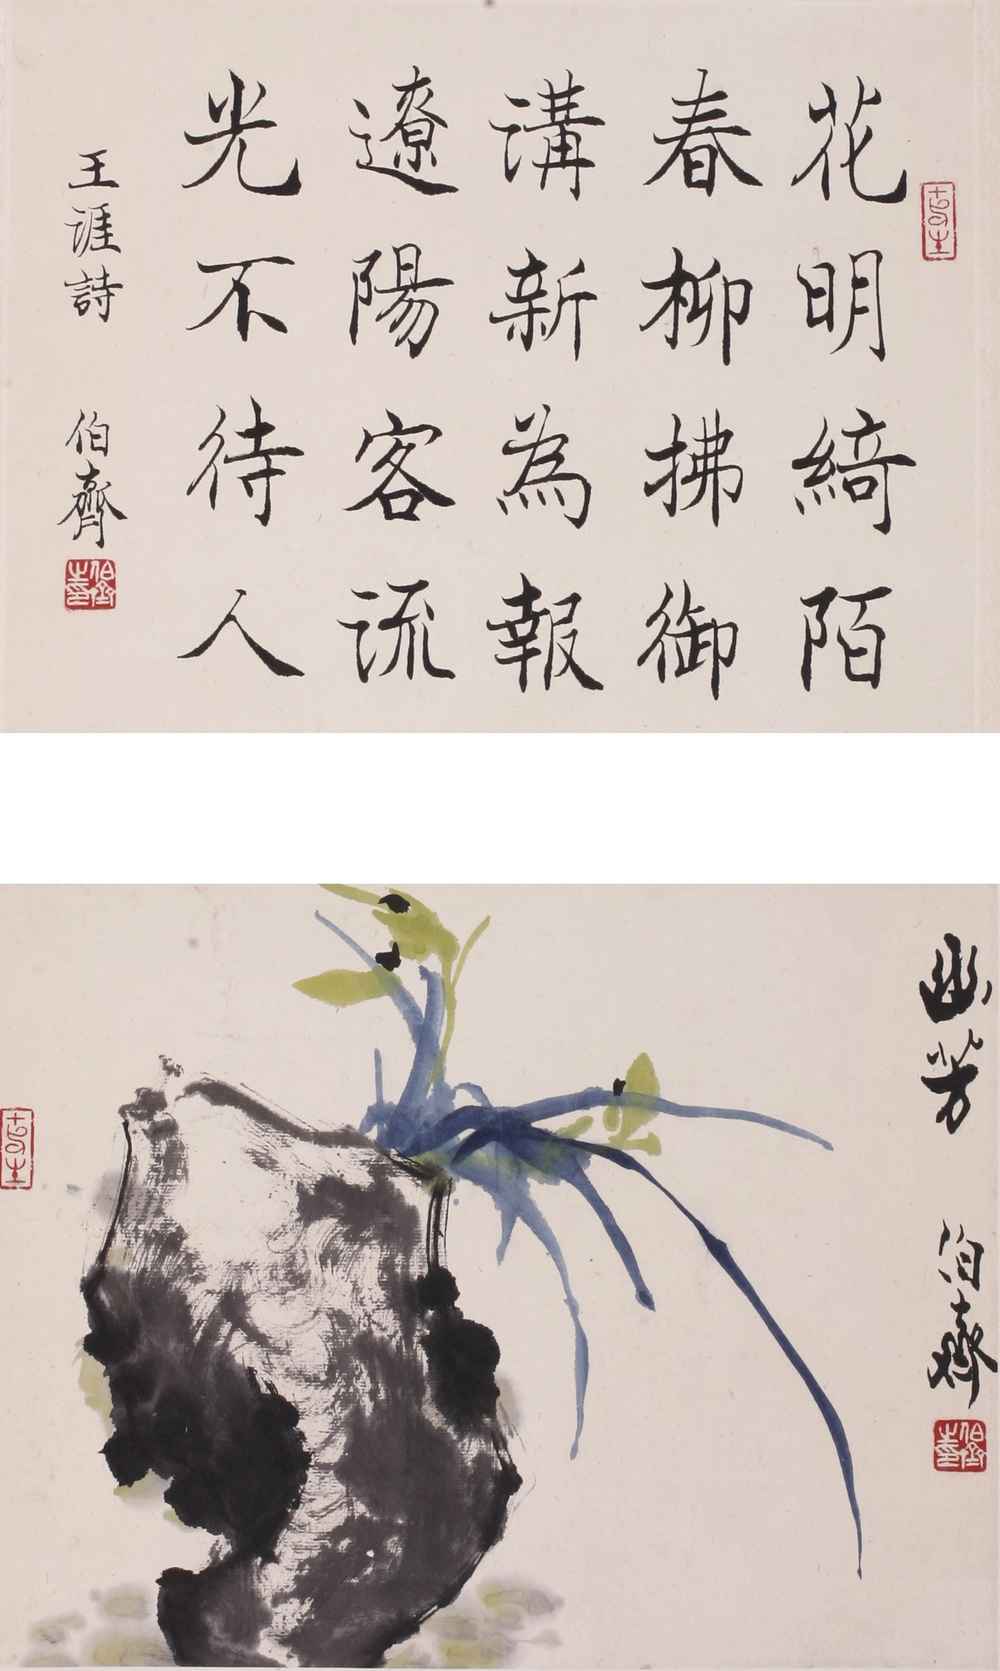 花明綺陌
春柳拂御
溝新為報
遼陽客流
光不待人
王涯詩 伯齊
幽芳 伯齊